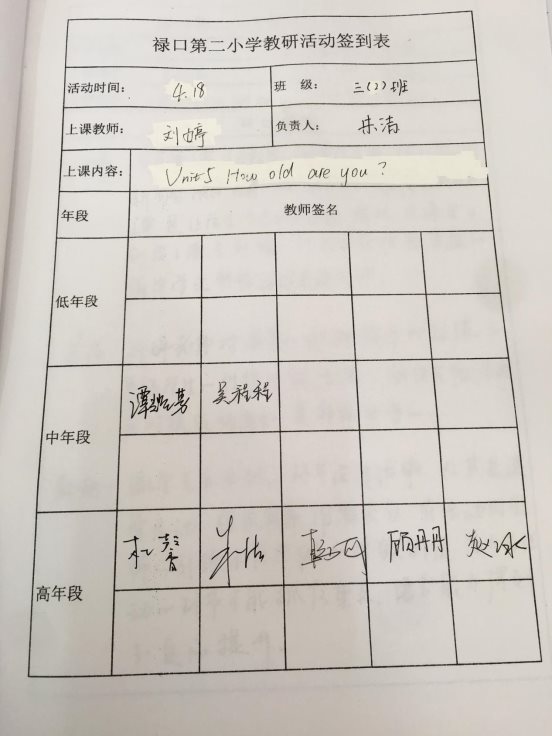 禄口第二小学教研活动签到表
活动时间: 4.18 班 级: 三(2)班
上课教师: 刘婷 负责人: 朱洁
上课内容: Unit5 How old are you?
年段 教师签名
低年段
中年段 吴程程
高年段 顾丹丹 赵冰